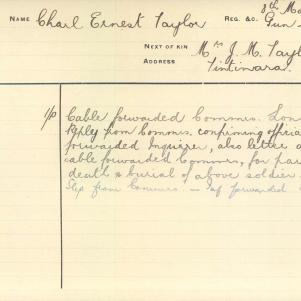 NAME Charl Ernest Taylor REG. &C. 8th Ma
Gun
NEXT OF KIN Mrs J. M. Tayl
ADDRESS Tintinara.
Cable forwarded Commrs. Lon
Reply from Commrs. confirming officia
forwarded Inquirer, also letter a
cable forwarded Commrs, for par
death & burial of above soldier.
Slip from Commrs. — Inf forwarded